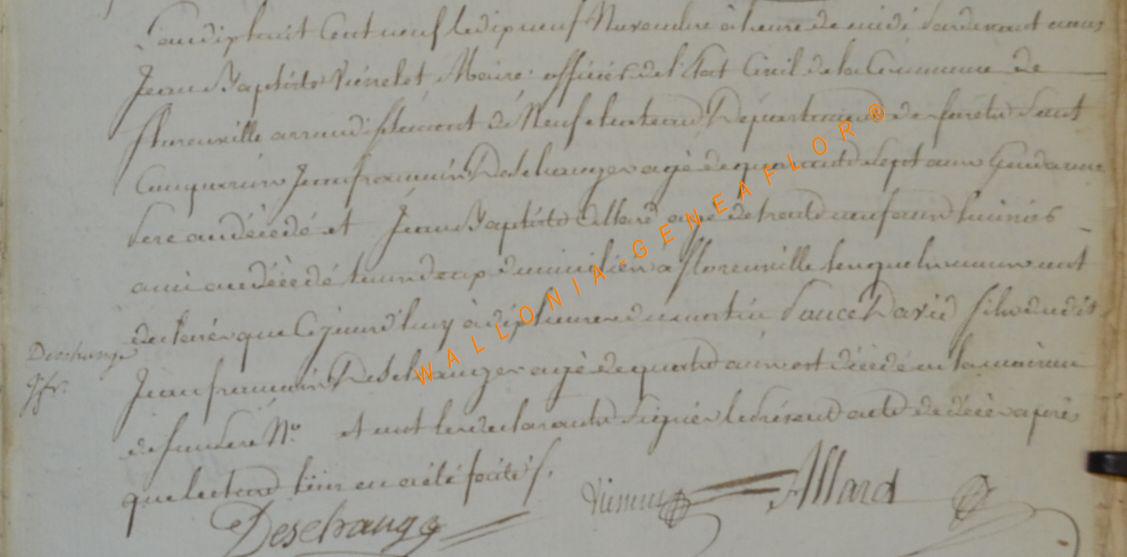 L'an dix huit Cent neuf le dix neuf Novembre à heure de midi pardevant nous
Jean Baptiste Maire officier de l'Etat Civil de la Commune de
florenville arrondissement de Neufchateau Département de forêts sont
Comparus Jean françois Deschanges agé de quarante sept ans Gendarme
Pere au décédé et Jean Baptiste Allard agé de trente neuf ans huissier
ami au décédé tous deux domiciliés a florenville lesquels nous ont
déclarés que Cejourd'huy à dix heures du matin David fils dudit
Deschange
Jean françois Deschanges agé de quatre ans est décédé en la maison
de son pere N° et ont les declarants signés le présent acte de décès après
que lecture leur en a été faite
Deschange Allard
WALLONIA-GENEAFLOR®